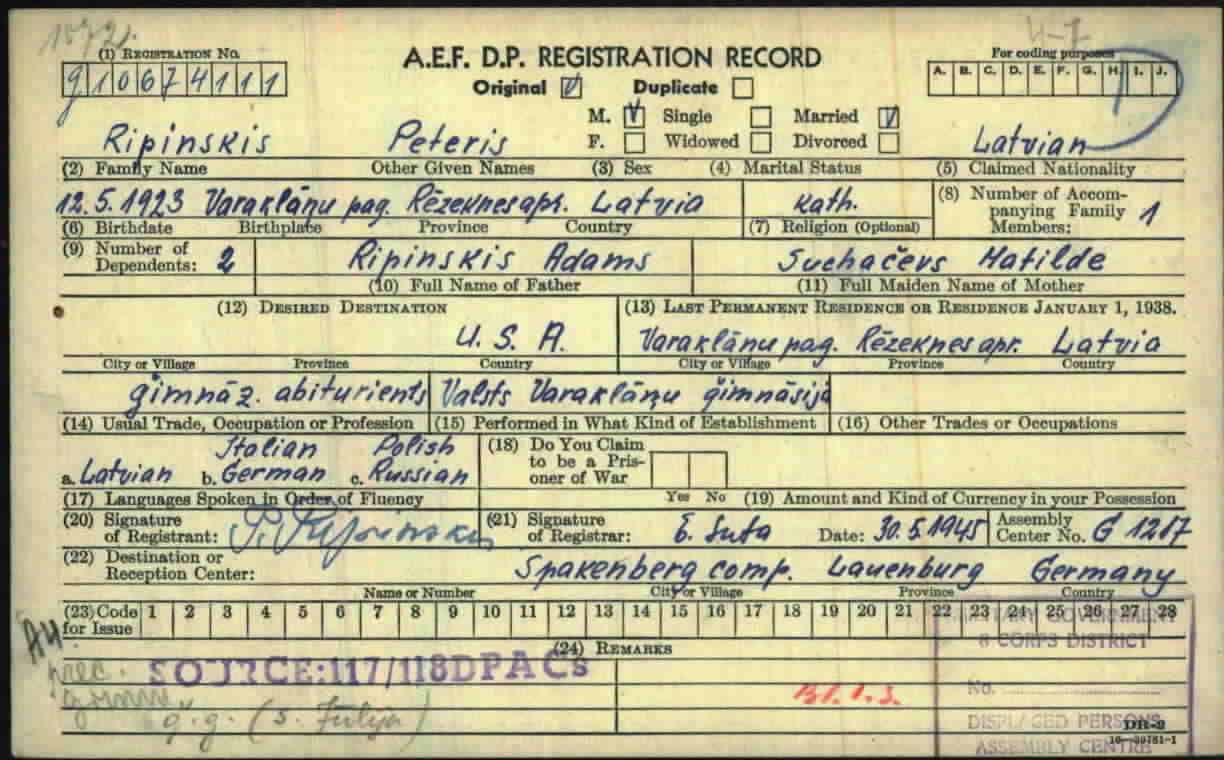 1572.
4-7
(1) REGISTRATION NO.
A.E.F. D.P. REGISTRATION RECORD
For coding purposes
G10674111
Original ☑ Duplicate ☐
A. B. C. D. E. F. G. H. I. J.
M. ☑ Single ☐ Married ☑
F. ☐ Widowed ☐ Divorced ☐
Ripinskis Peteris Latvian
(2) Family Name Other Given Names (3) Sex (4) Marital Status (5) Claimed Nationality
12.5.1923 Varakļānu pag. Rēzeknes apr. Latvia kath.
(8) Number of Accompanying Family Members: 1
(6) Birthdate Birthplace Province Country (7) Religion (Optional)
(9) Number of Dependents: 2
Ripinskis Adams Suchačevs Matilde
(10) Full Name of Father (11) Full Maiden Name of Mother
(12) DESIRED DESTINATION (13) LAST PERMANENT RESIDENCE OR RESIDENCE JANUARY 1, 1938.
U. S. A. Varakļānu pag. Rēzeknes apr. Latvia
City or Village Province Country City or Village Province Country
ģimnāz. abiturients Valsts Varakļāņu ģimnāsijā
(14) Usual Trade, Occupation or Profession (15) Performed in What Kind of Establishment (16) Other Trades or Occupations
Italian Polish
a. Latvian b. German c. Russian
(18) Do You Claim to be a Prisoner of War
Yes No
(17) Languages Spoken in Order of Fluency (19) Amount and Kind of Currency in your Possession
(20) Signature of Registrant: P. Ripinskis
(21) Signature of Registrar: E. Suta Date: 30.5.1945 Assembly Center No. G 1217
(22) Destination or Reception Center:
Spakenberg comp. Lauenburg Germany
Name or Number City or Village Province Country
(23) Code for Issue 1 2 3 4 5 6 7 8 9 10 11 12 13 14 15 16 17 18 19 20 21 22 23 24 25 26 27 28
MILITARY GOVERNMENT
8 CORPS DISTRICT
(24) REMARKS
A4.
prec.
SOURCE:117/118DPACs
No.
B1.1.3.
g.g. (s. Julija)
DISPLACED PERSONS
DR-2
ASSEMBLY CENTRE
16-39781-1